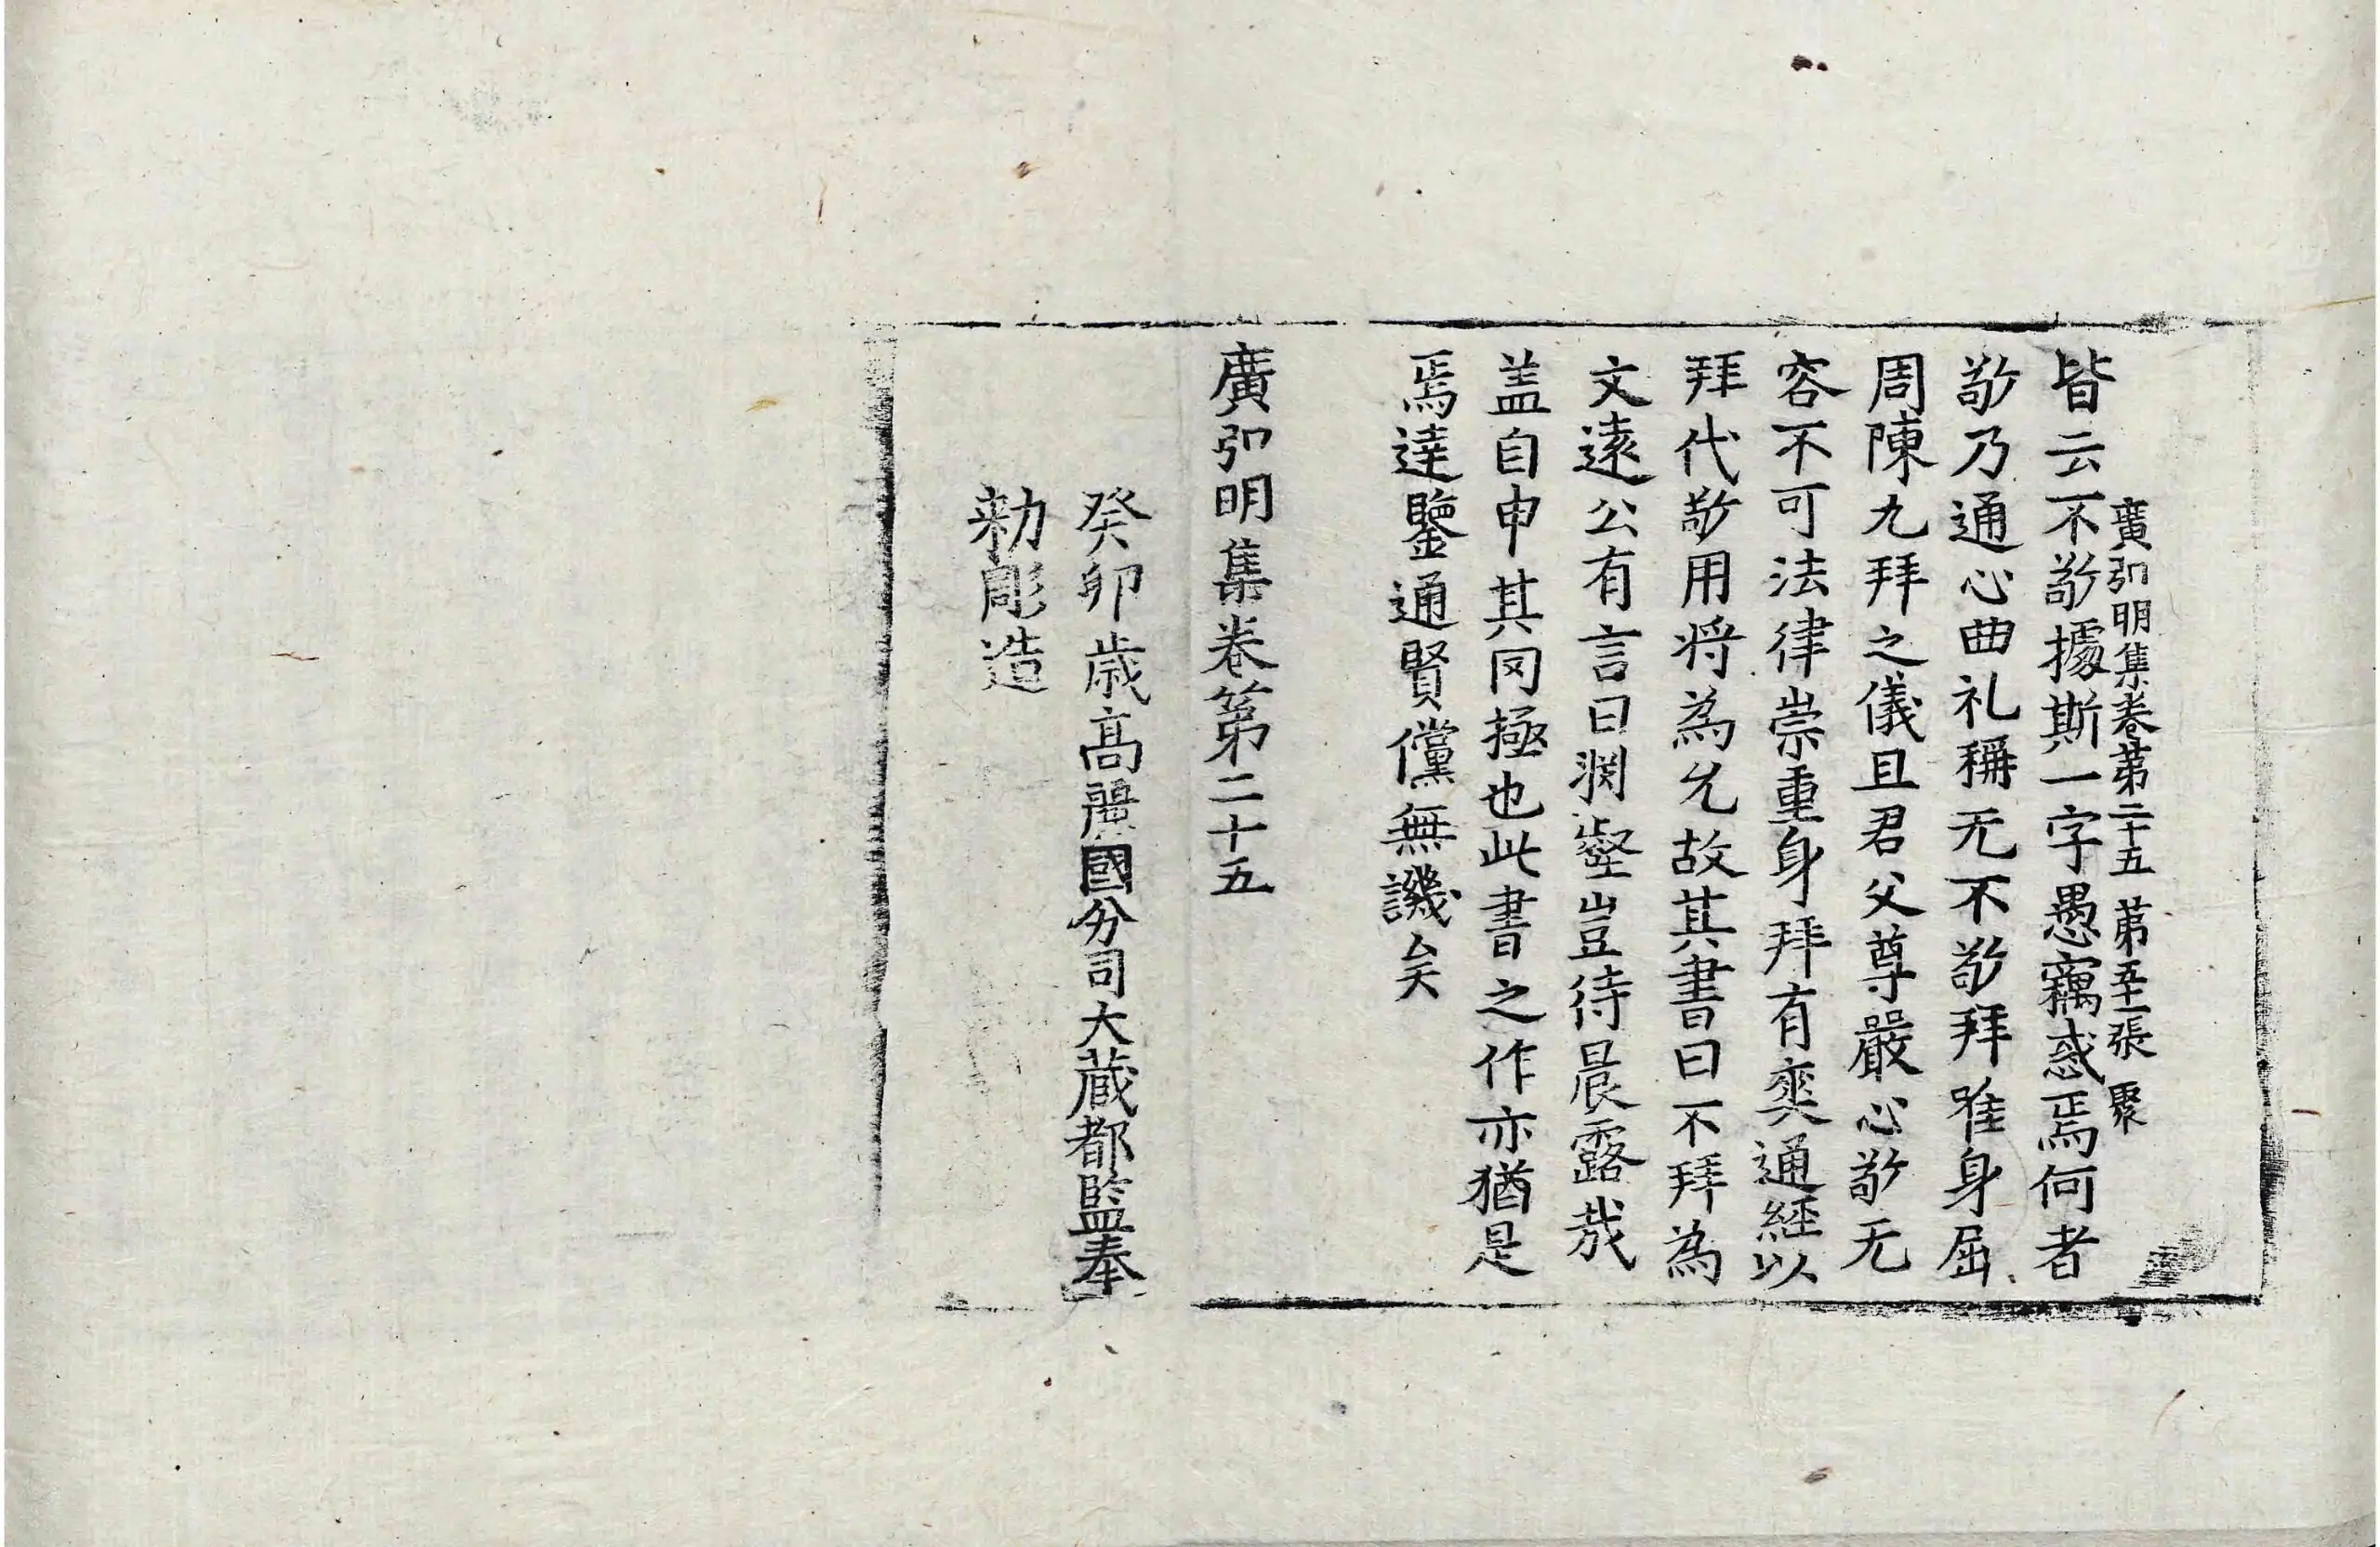 廣弘明集卷第二十五 第五十一張 聚
皆云不敬據斯一字愚竊惑焉何者
敬乃通心曲礼稱无不敬拜唯身屈
周陳九拜之儀且君父尊嚴心敬无
容不可法律崇重身拜有爽通經以
拜代敬用将為允故其書曰不拜為
文遠公有言曰渕壑豈待晨露哉
盖自申其罔極也此書之作亦猶是
焉達鑒通賢儻無譏矣
廣弘明集卷第二十五
癸卯歳高麗國分司大蔵都監奉
勑彫造